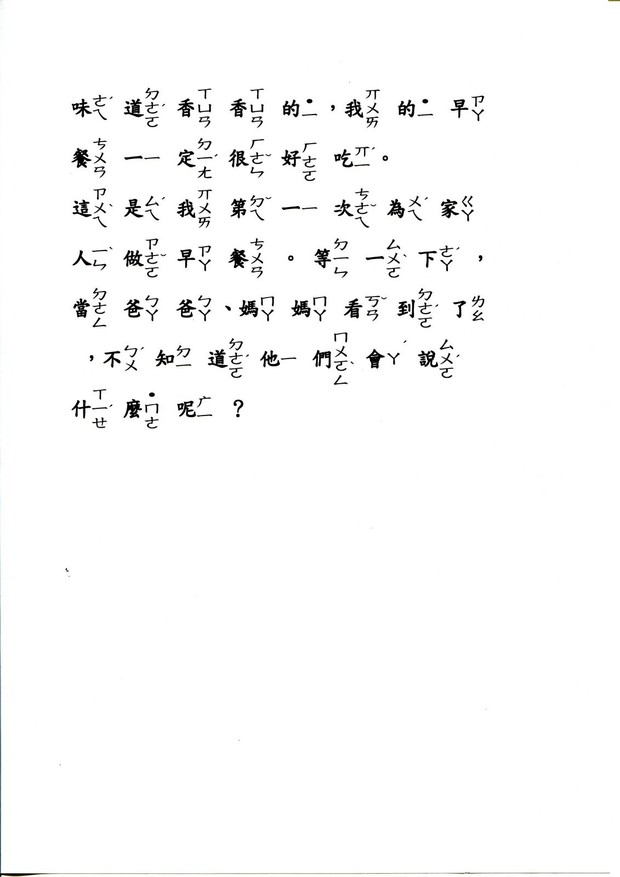 味ㄜㄟˊ道ㄉㄜㄛˊ香ㄒㄩㄢ香ㄒㄩㄢ的˙ㄧ，我ㄞㄨㄞ的˙ㄧ早ㄗㄚ
餐ㄘㄨㄢ一ㄧ定ㄉㄧㄤˊ很ㄏㄜㄣˇ好ㄏㄜㄛ吃ㄞㄧˊ。
這ㄗㄨㄟˇ是ㄙㄟˊ我ㄞㄨㄞ第ㄉㄟˇ一ㄧ次ㄘㄜㄟˇ為ㄨㄟˊ家ㄍㄚ
人ㄧㄣˋ做ㄗㄜㄛˇ早ㄗㄚ餐ㄘㄨㄢ。等ㄉㄧㄣ一ㄙㄨㄛˇ下ㄜㄚˊ，
當ㄉㄜㄥ爸ㄅㄚˊ爸ㄅㄚˊ、媽ㄇㄚ媽ㄇㄚ看ㄎㄢˇ到ㄉㄜㄛˊ了ㄌㄠ
，不ㄅㄨˊ知ㄉㄧ道ㄉㄜㄛˊ他ㄧ們ㄇㄨㄛㄥˊ會ㄚˊ說ㄙㄨㄛˊ
什ㄒㄧㄝˊ麼˙ㄇㄜ呢ㄏㄧ？